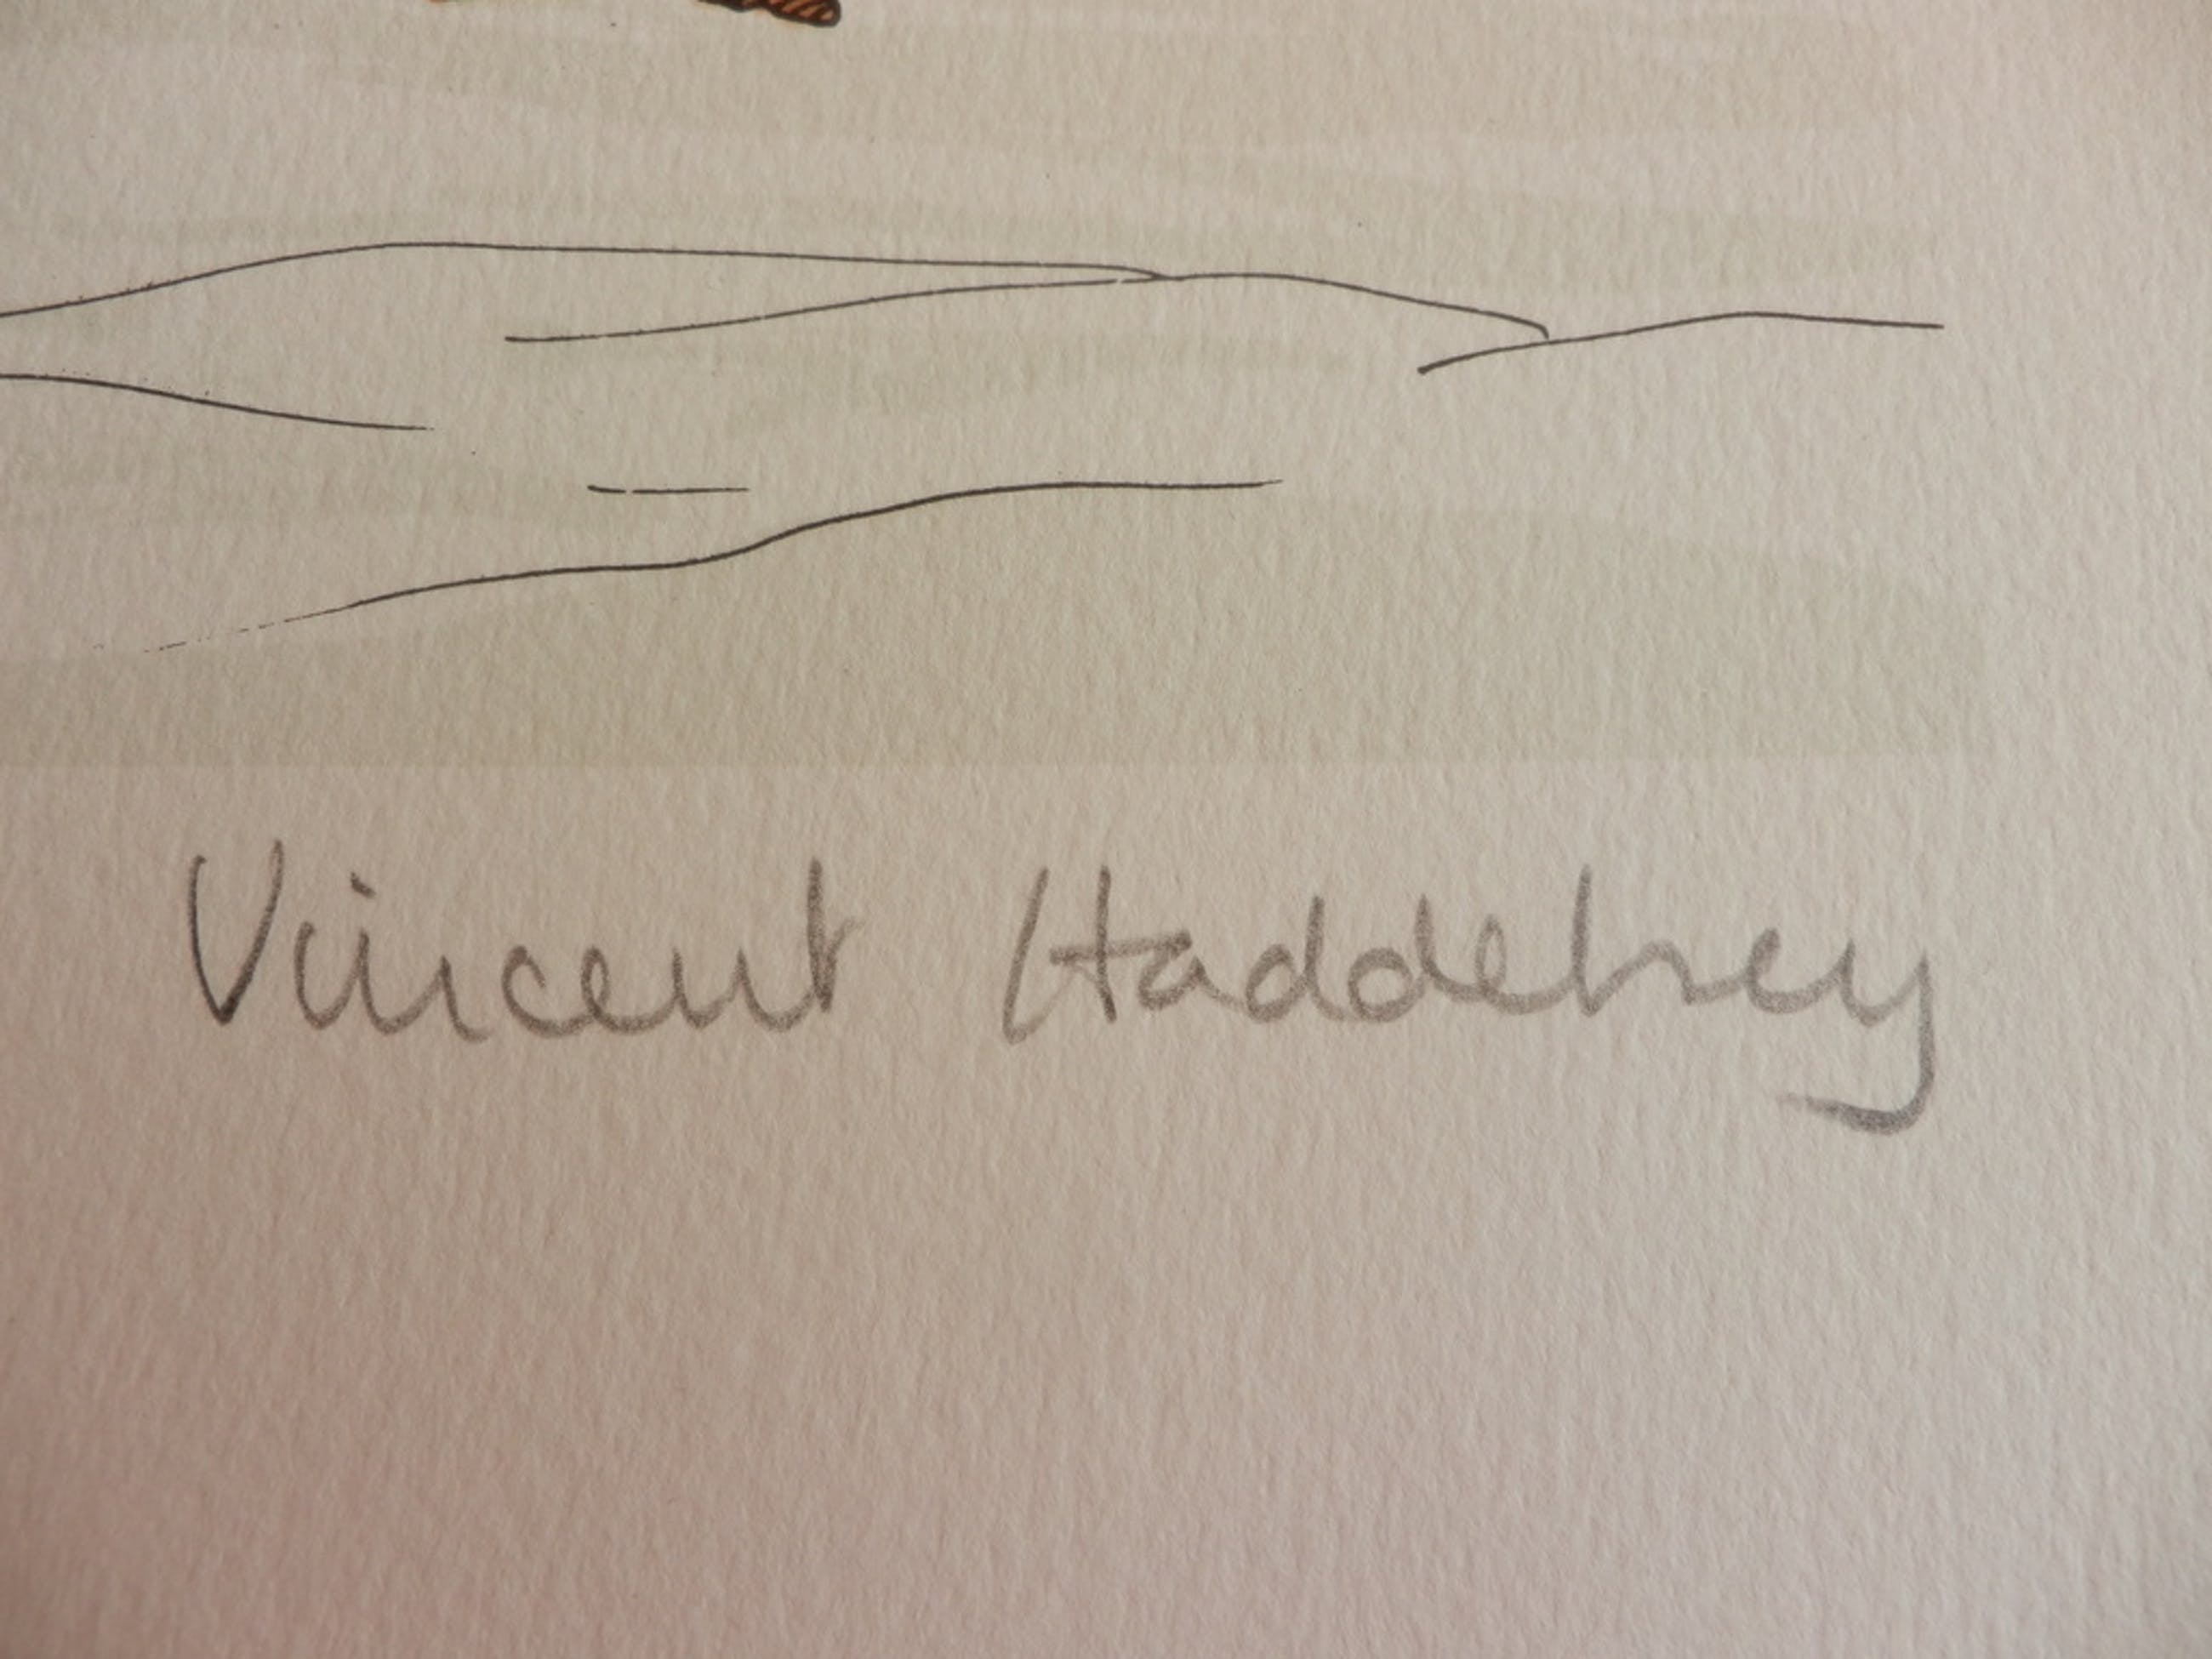 Vincent Haddelsey